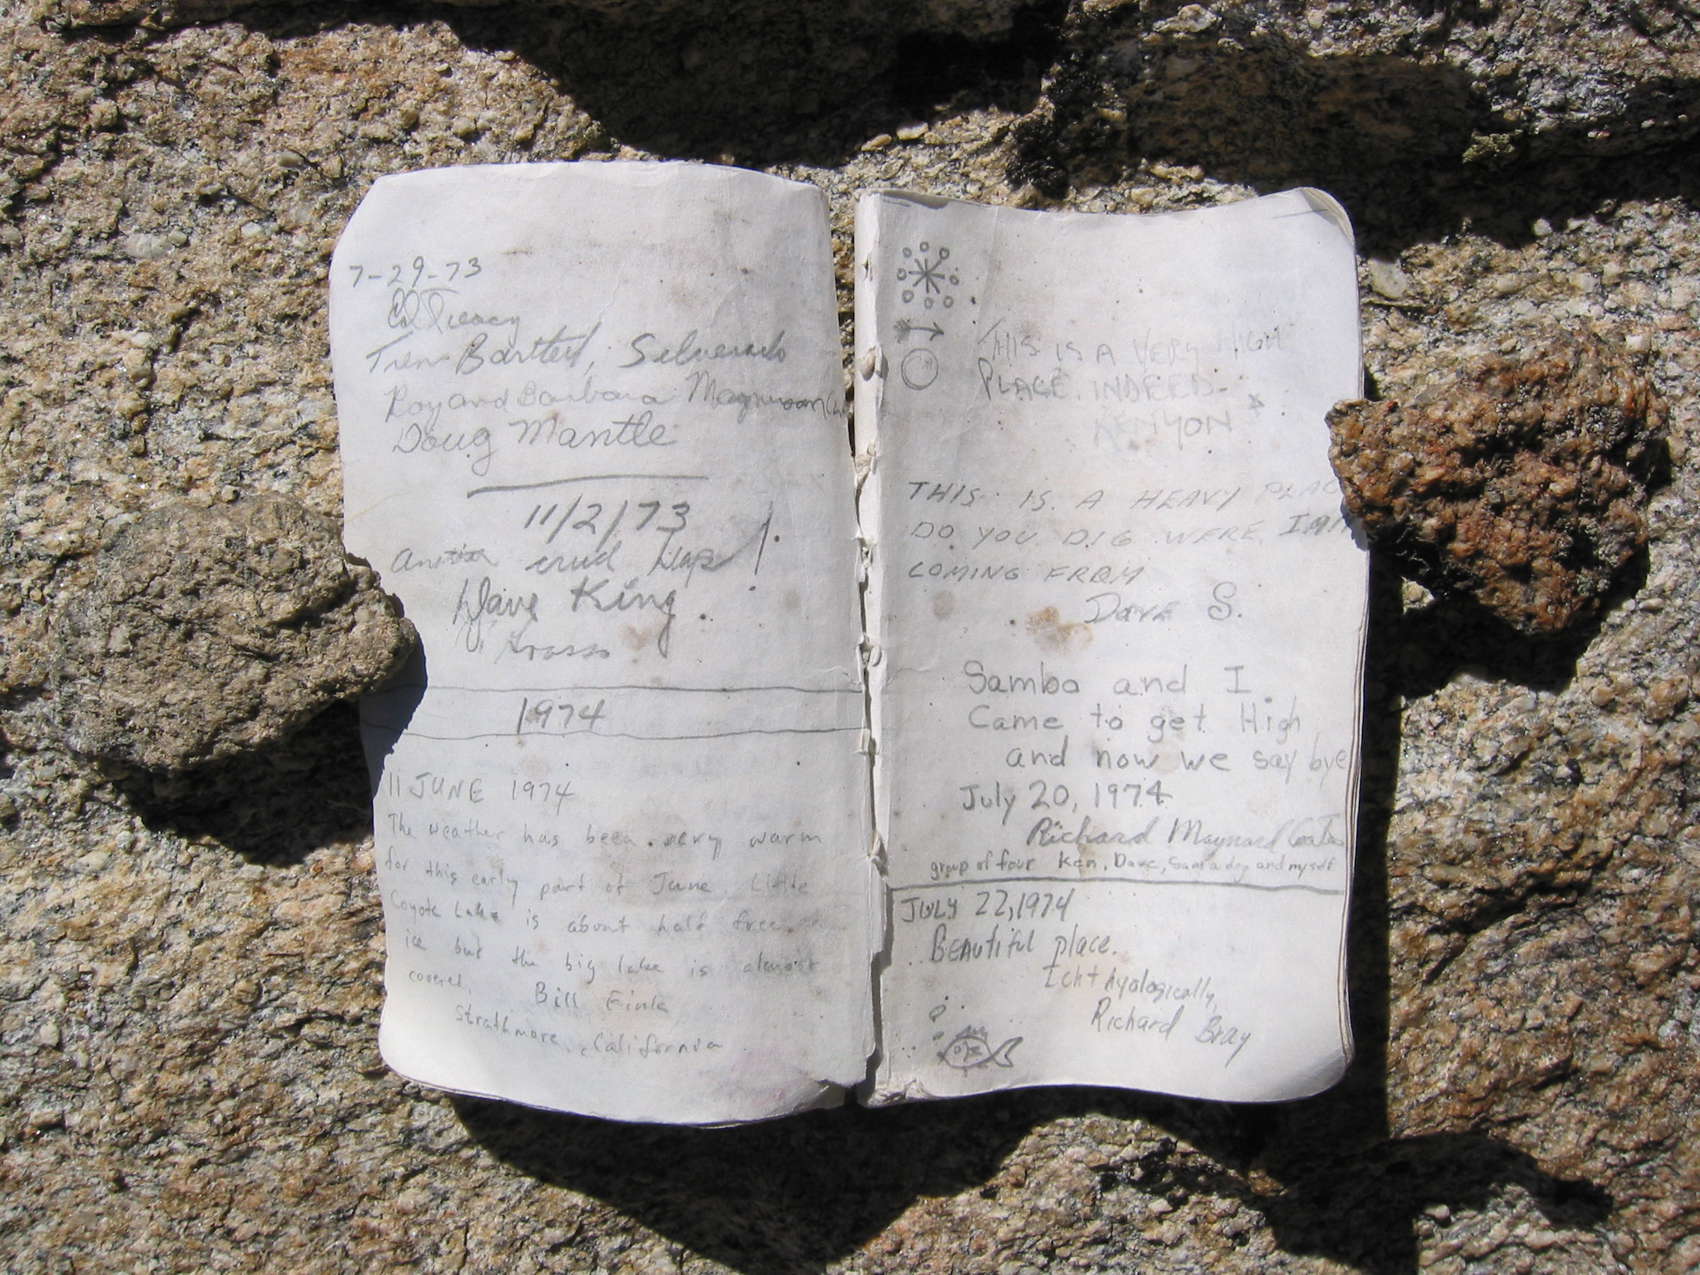 7-29-73
Treacy
Bartlett,
Roy and Barbara Magnuson
Doug Mantle
11/2/73
Dave King
1974
11 JUNE 1974
The weather has been very warm
for this early part of June. Little
Coyote Lake is about half free
ice but the big lake is almost
covered. Bill
Strathmore, California
THIS IS A VERY HIGH
PLACE INDEED-
KENYON
THIS IS A HEAVY PLAC
DO YOU DIG WERE IM
COMING FROM
Dave S.
Sambo and I
Came to get High
and now we say bye
July 20, 1974
Richard Maynard
group of four Ken, Dave, Sam a dog and myself
JULY 22, 1974
BEAUtiful place.
Ichthyologically,
Richard Bray